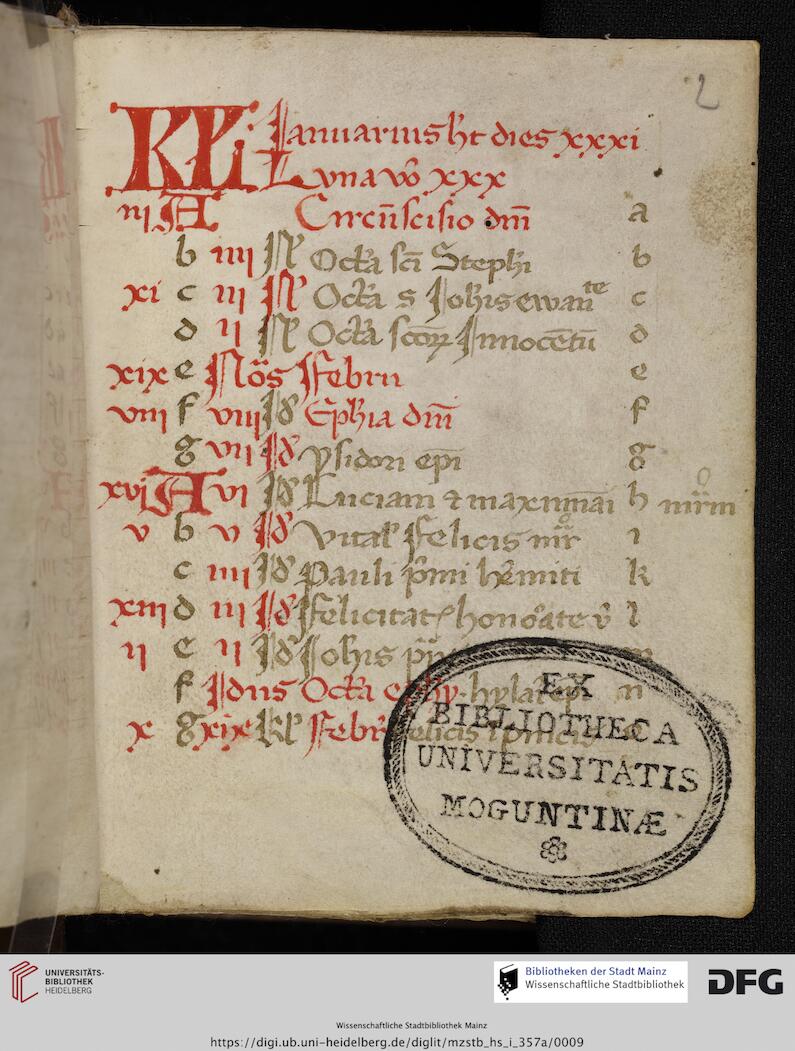 2
KL i Ianuarius ht dies xxxi
Luna vo xxx
iii A Circu̅scisio dm̅ a
b iiii N Octa sci̅ Stephi b
xi c iii N Octa s Iohis ewan te c
d ii N Octa scoꝝ Innoce̅tu̅ d
xix e Nos Febru e
viii f viii Id Ephia dm̅ f
g vii Id ysidori epi̅ g
xvi A vi Id Luciani & maximiani h mr̅m
v b v Id Vital Felicis mr̅ i
c iiii Id Pauli pmi hemiti k
xiii d iii Id Felicitat honoate v l
ii e ii Id Iohis m
f Idus Octa ephy hylaī epi n
x g xix kl Febr felicis
EX
BIBLIOTHECA
UNIVERSITATIS
MOGUNTINÆ
UNIVERSITÄTS-
BIBLIOTHEK
HEIDELBERG
Bibliotheken der Stadt Mainz
Wissenschaftliche Stadtbibliothek
DFG
Wissenschaftliche Stadtbibliothek Mainz
https://digi.ub.uni-heidelberg.de/diglit/mzstb_hs_i_357a/0009